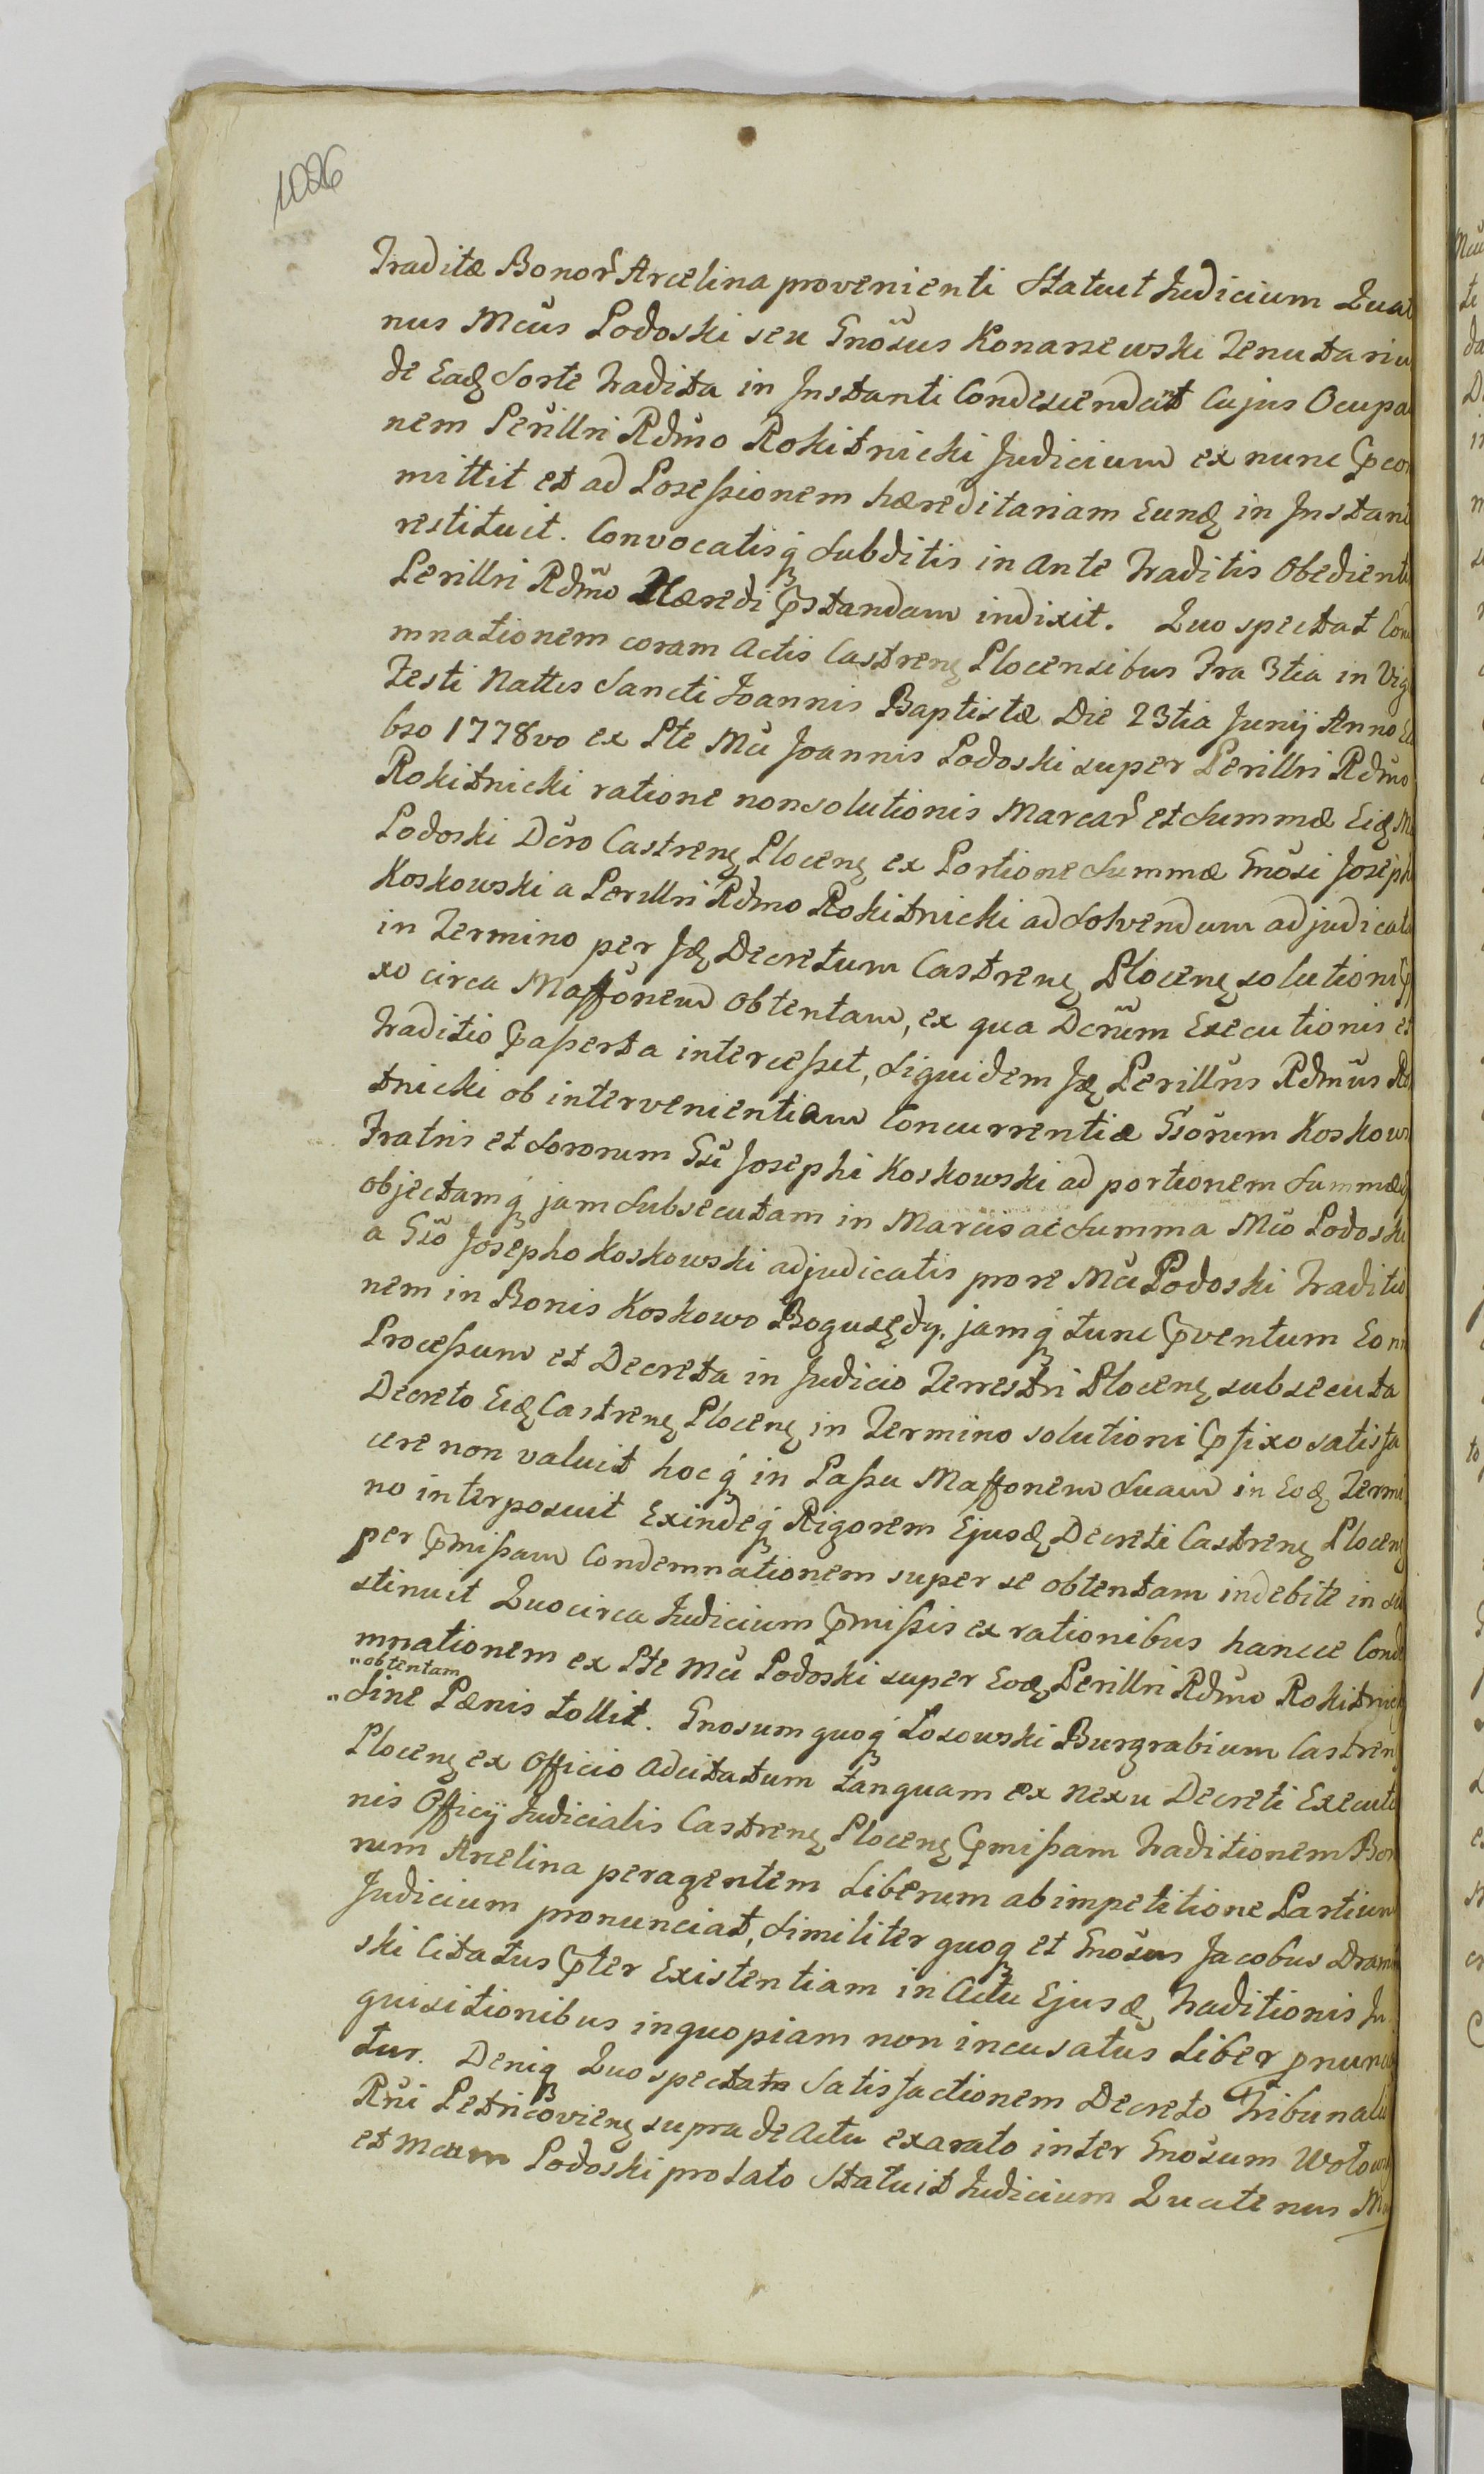 1026
Traditæ Bonor Arcelina provenienti Statuit Judicium Quat
nus Mcus Podoski seu Gnosus Konarzewski Tenutariu
de Eadq Sorte Tradita in Instanti Condescendat Cujus Ocupa
nem Perillri Rdmo Rokitnicki Judicium ex nunc pcom
mittit et ad Posessionem hæreditariam Eundq in Instanti
restituit. Convocatisq Subditis in Ante Traditis Obedienti
Perillri Rdmo Hæredi pstandam indixit. Quo spectat Con
mnationem coram Actis Castrens Plocensibus Fra 3tia in Vigi
Festi Nattis Sancti Joannis Baptistæ Die 23tia Junij Anno
bso 1778vo ex Pte Mci Joannis Podoski super Perillri Rdmo
Rokitnicki ratione nonsolutionis Marcar et Summæ Eidq M
Podoski Dcro Castrens Plocens ex Portione Summæ Gnosi Joseph
Koskowski a Perillri Rdmo Rokitnicki ad Solvendum adjudicata
in Termino per Idq Decretum Castrens Plocens solutioni pfi
xo circa Maffonem obtentam, ex qua Dcrum Executionis et
Traditio passerta intercessit, Siquidem Idq Perillus Rdmus Ro
tnicki ob intervenientiam Concurrentiæ Gsorum Koskows
Fratris et Sororum Gsi Josephi Koskowski ad portionem Summæ
objectamq jam Subsecutam in Marcis ac Summa Mco Podoski
a Gso Josepho Koskowski adjudicatis pro re Mci Podoski Traditio
nem in Bonis Koskowo Bogusędy. jamq tunc pventum Eonn
Processum et Decreta in Judicio Terrestri Plocens subsecuta
Decreto Eidq Castrens Plocens in Termino solutioni pfixo satisfa
cere non valuit hocq in Passu Maffonem Suam in Eodq Termi
no interposuit Exindeq Rigorem Ejusdq Decreti Castrens Plocens
per pmissam Condemnationem super se obtentam indebite in su
stinuit Quocirca Judicium pmissis ex rationibus hancce Conde
mnationem ex Pte Mci Podoski super Eodq Perillri Rdmo Rokitnick
"obtentam
"Sine Pænis tollit. Gnosum quoq Losowski Burgrabium Castren
Plocens ex Officio Adcitatum tanquam ex Nexu Decreti Executi
nis Officij Judicialis Castrens Plocens pmissam Traditionem Bon
rum Arcelina peragentem Liberum ab impetitione Partium
Judicium pronunciat, Similiter quoq et Gnosus Jacobus Dramiń
ski Citatus pter Existentiam in Actu Ejusdq Traditionis In
quisitionibus inquopiam non incusatus Liber pnuncia
tur. Deniq Quo spectatn Satisfactionem Decreto Tribunali
Rni Petricoviens supra de Actu exarato inter Gnosum Wołowsk
et Mcum Podoski prolato Statuit Judicium Quatenus M